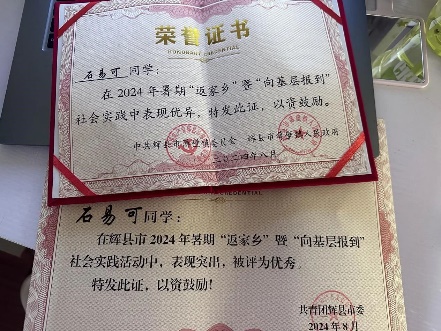 荣誉证书
HONORARY CREDENTIAL
石易可 同学：
在2024年暑期“返家乡”暨“向基层报到”
社会实践中表现优异，特发此证，以资鼓励。
中共辉县市 委员会 辉县市 人民政府
二〇二四年八月
CREDENTIAL
石易可同学：
在辉县市2024年暑期“返家乡”暨“向基层报到”
社会实践活动中，表现突出，被评为优秀。
特发此证，以资鼓励！
共青团辉县市委
2024年8月